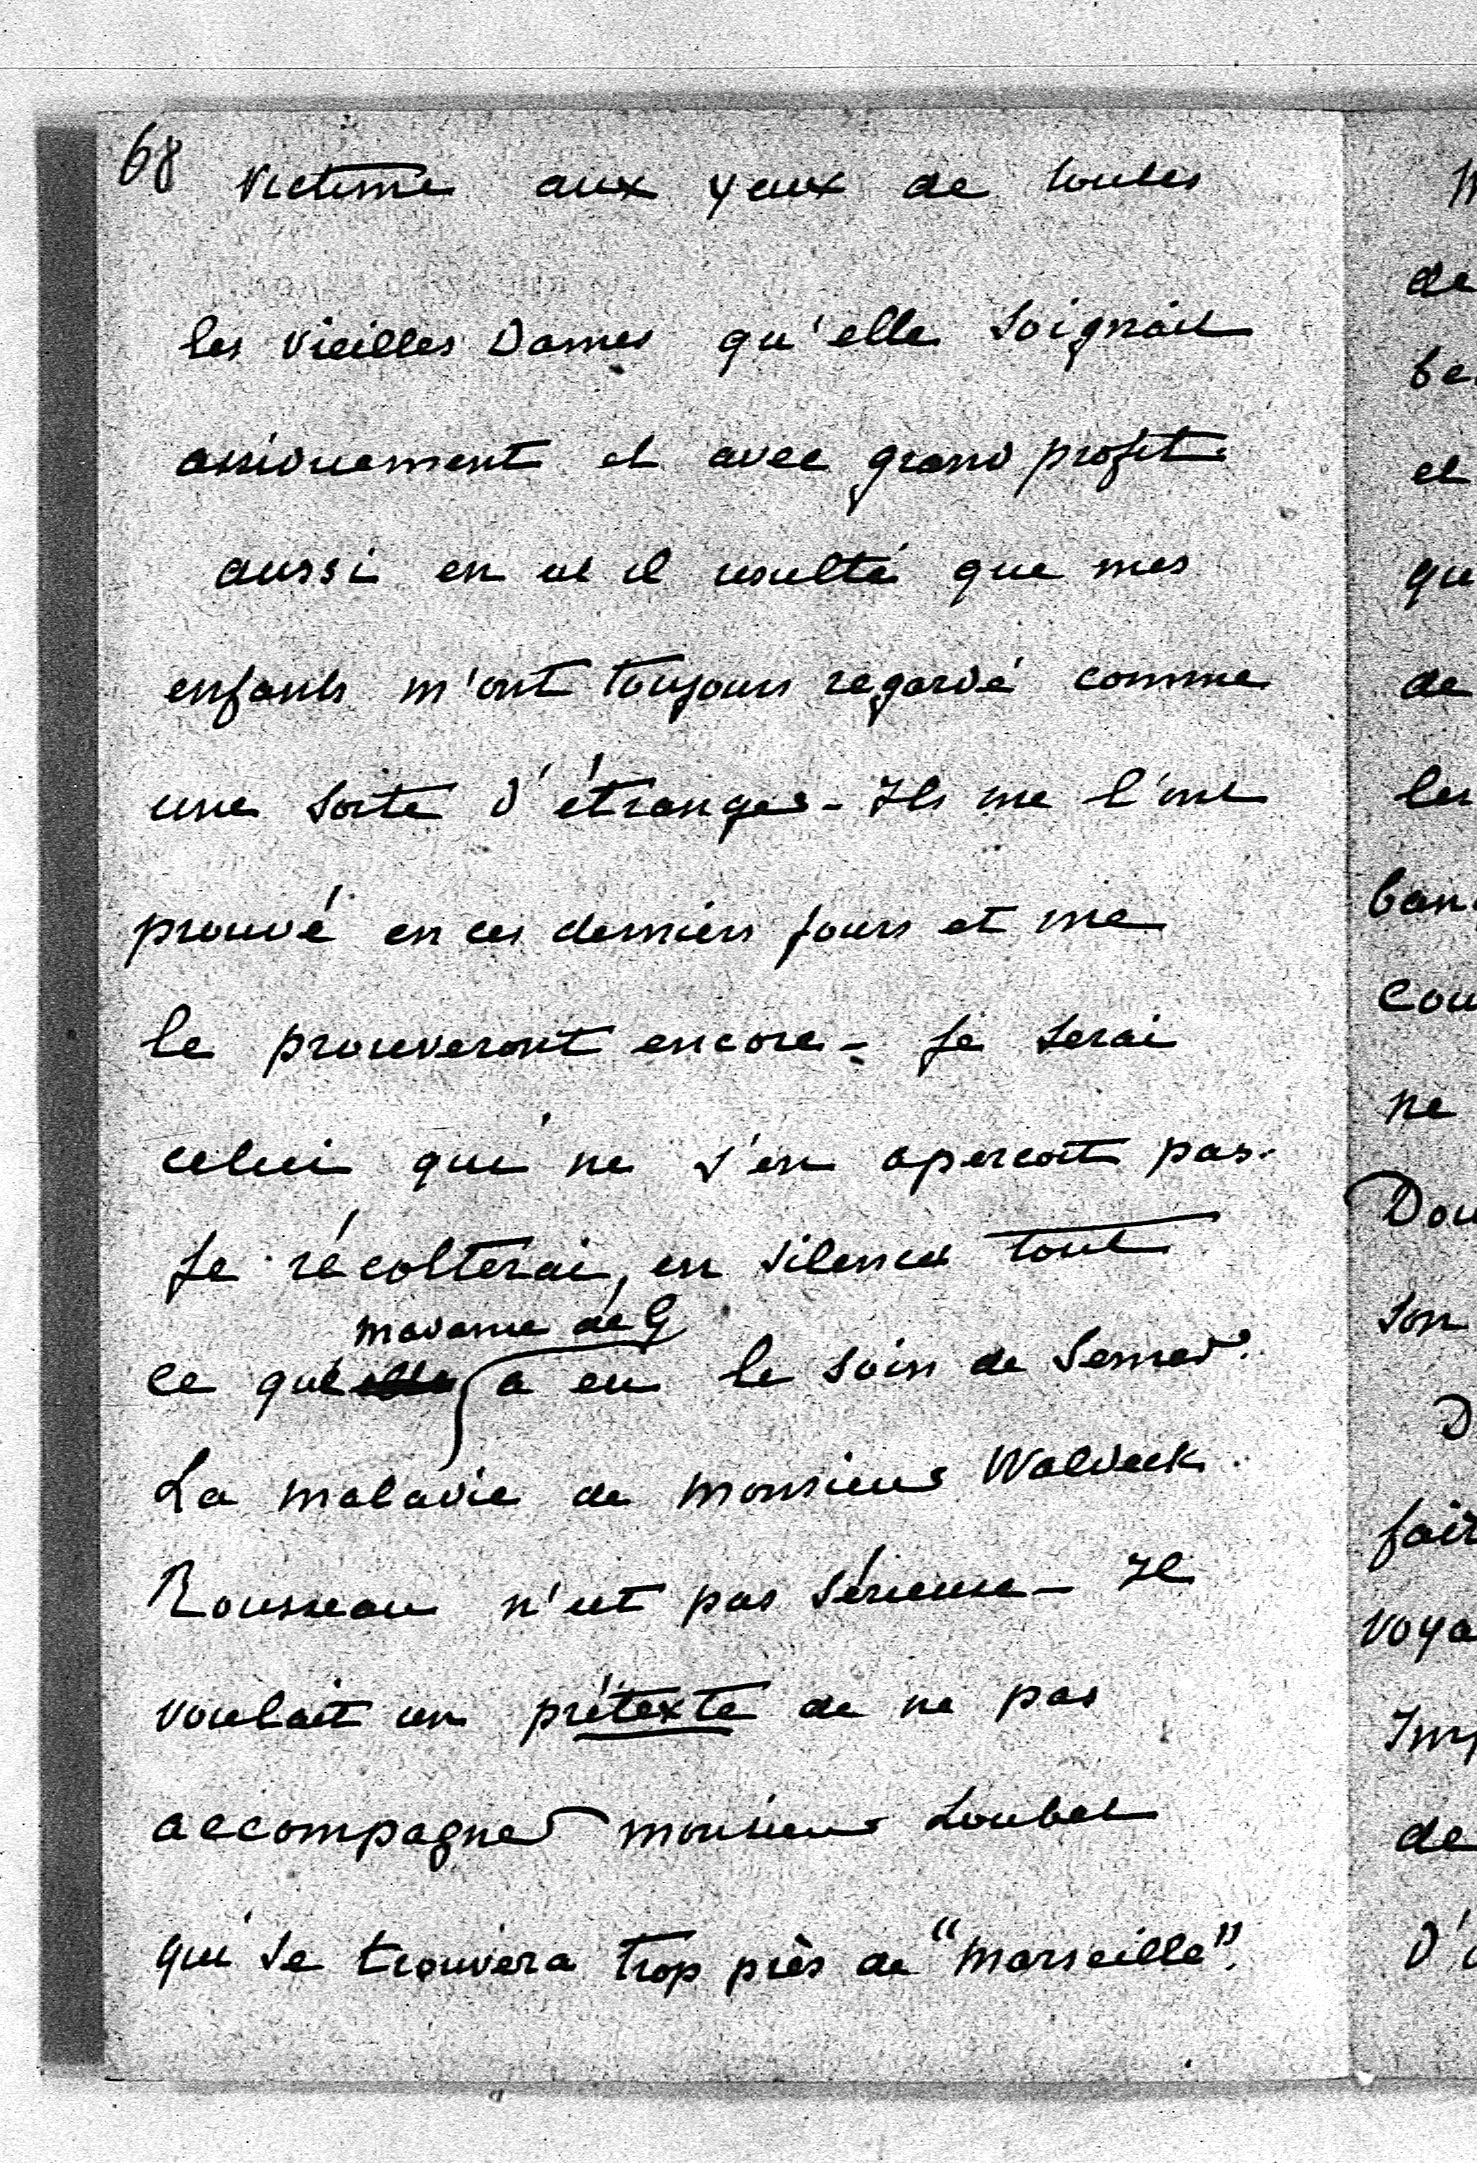 68
victime aux yeux de toutes
les vieilles Dames qu'elle soignait
assiduement et avec grand profit.
aussi en est il resulté que mes
enfants m'ont toujours regardé comme
une sorte d'étranger - Ils me l'ont
prouvé en ces derniers jours et me
le prouveront encore - Je serai
celui qui ne s'en apercoit pas.
Je récolterai, en silence tout
madame de G
ce que elle a eu le soin de semer.
La maladie de monsieur Waldeck
Rousseau n'est pas sérieuse - Il
voulait un prétexte de ne pas
accompagner monsieur Loubet
qui se trouvera trop près de "Marseille".
de
et
qu
de
les
ne
Dou
son
D
fair
voya
Imp
de